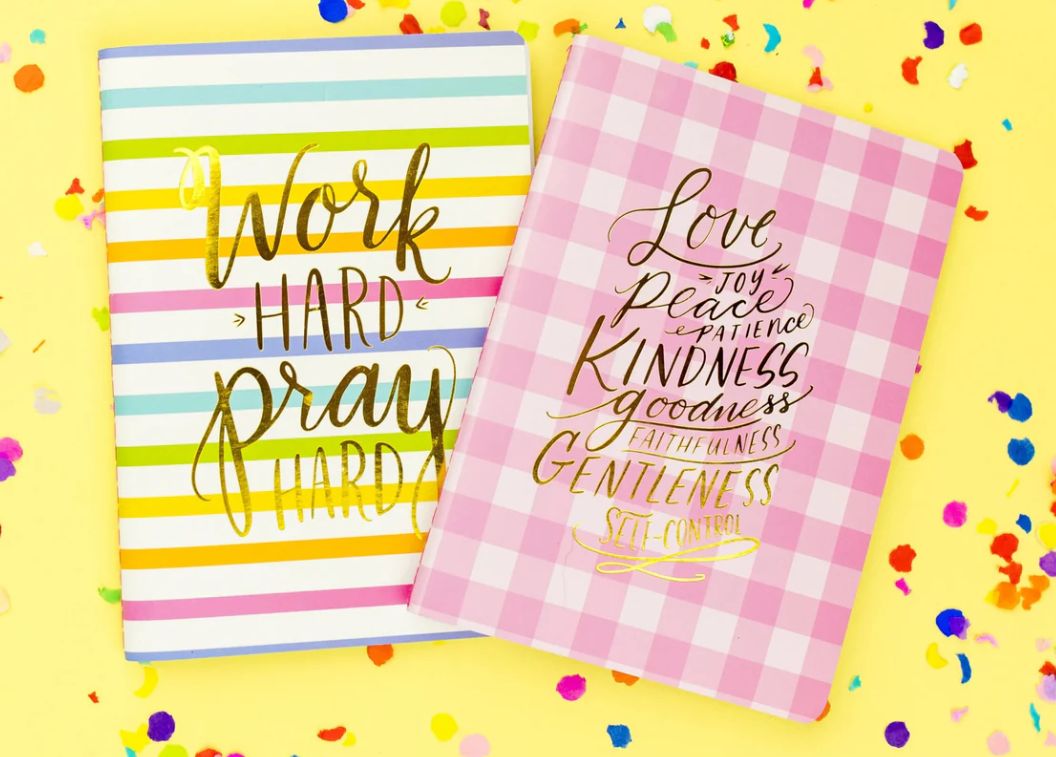 Work
HARD
pray
HARD
Love
JOY
Peace
PATIENCE
KINDNESS
goodness
FAITHFULNESS
GENTLENESS
SELF-CONTROL